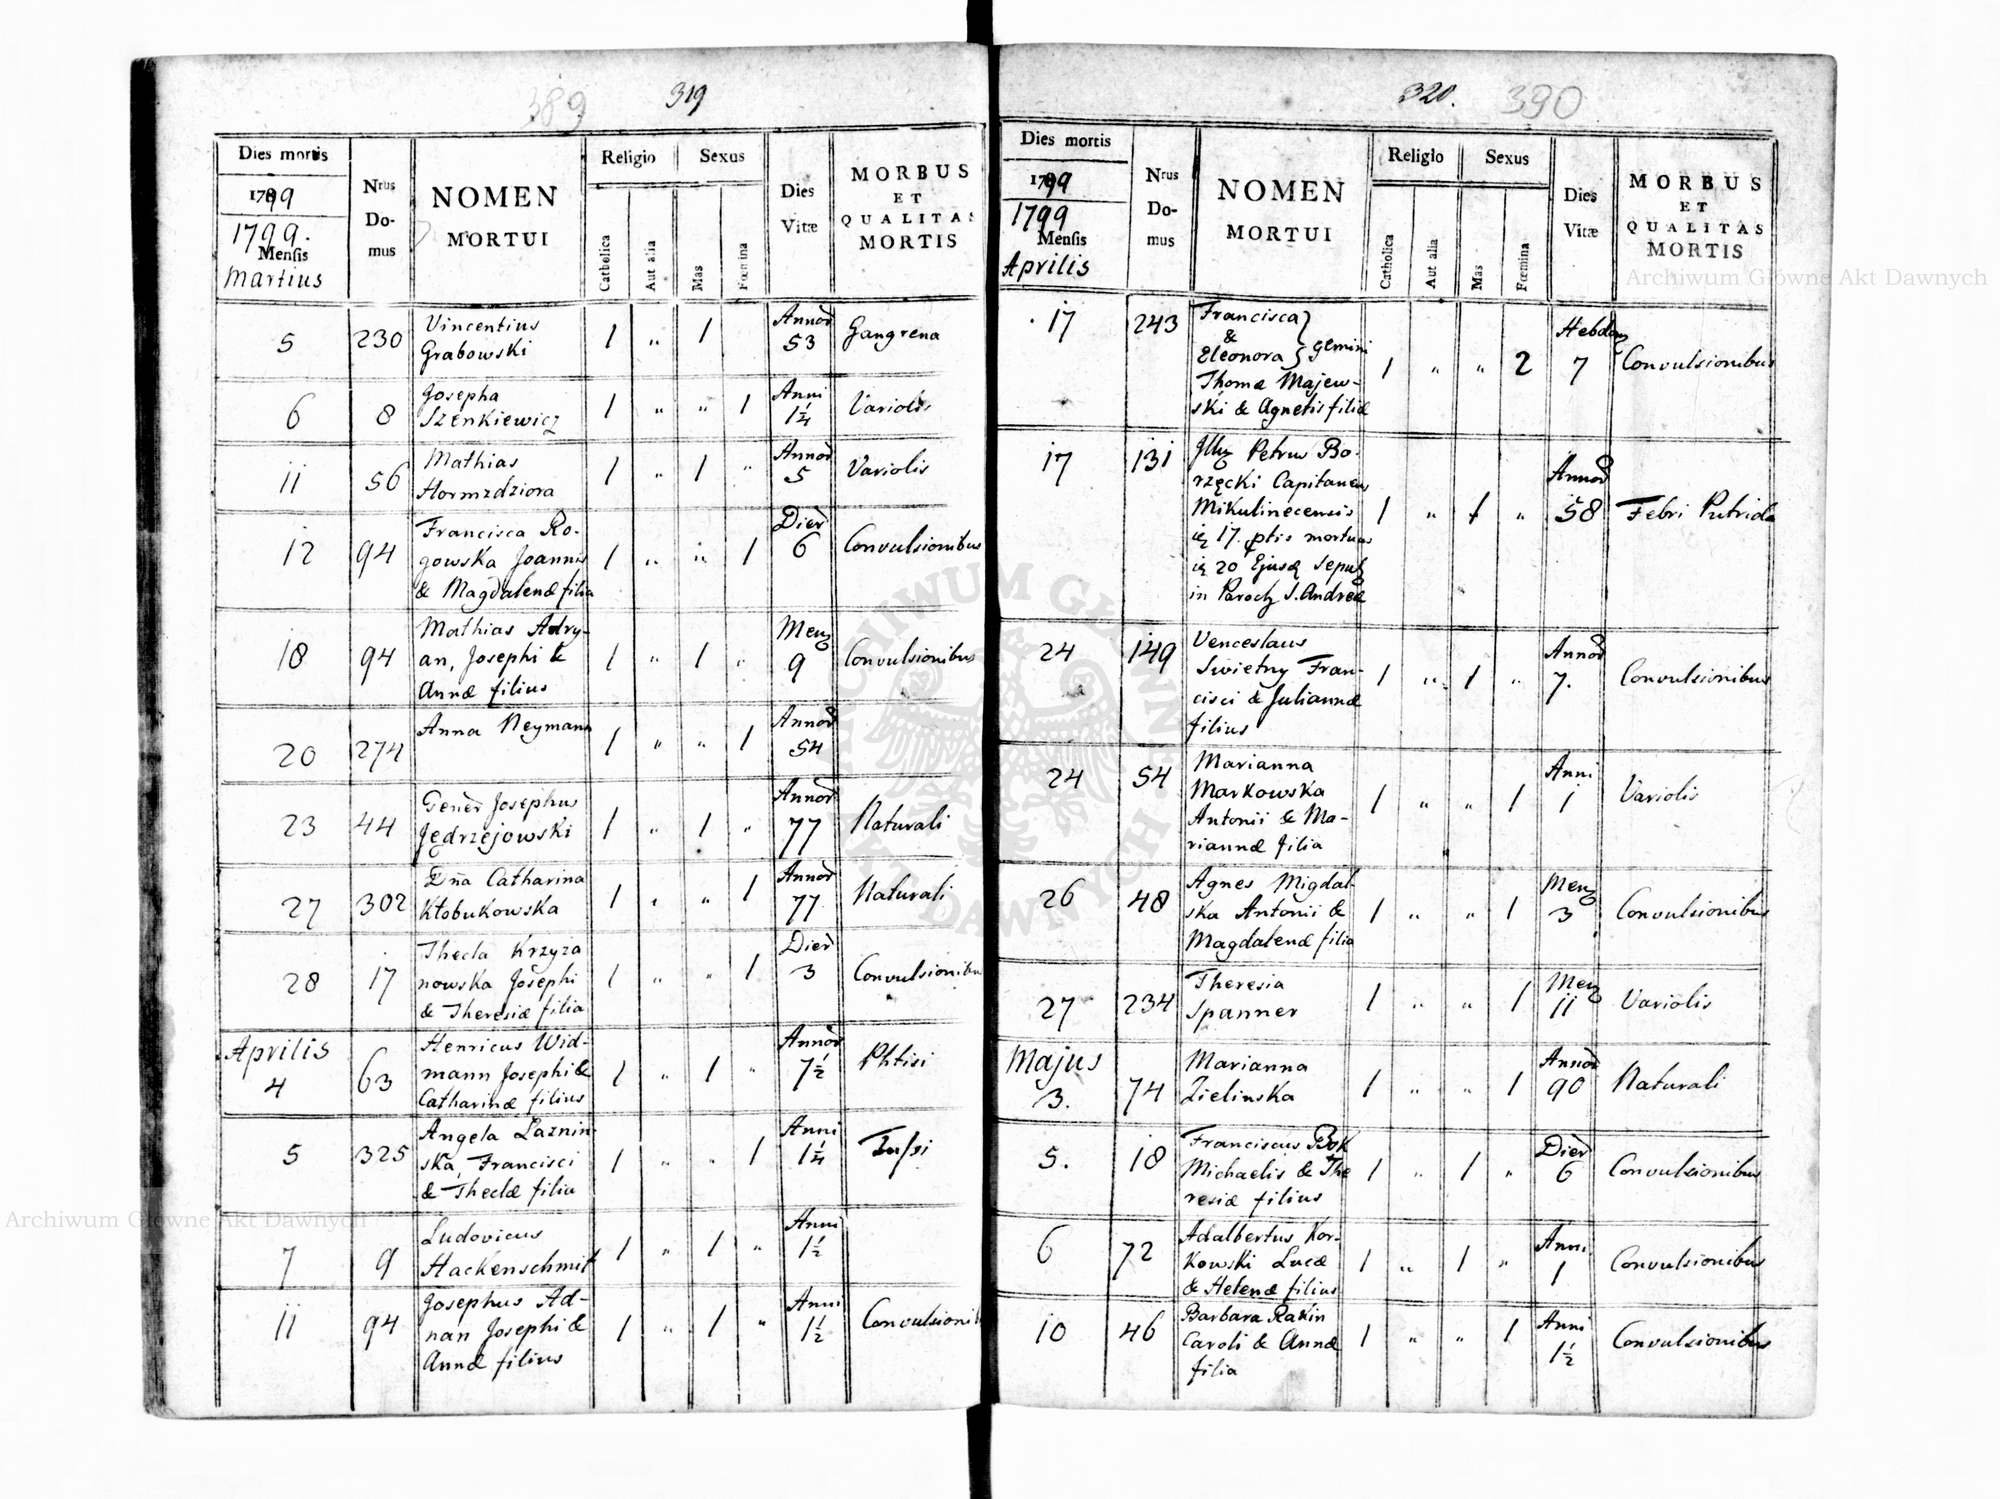 389 319
Dies mortis
1799
1799.
Mensis
Martius
Nrus
Do-
mus
NOMEN
MORTUI
Religio
Catholica
Aut alia
Sexus
Mas
Fœmina
Dies
Vitæ
MORBUS
ET
QUALITAS
MORTIS
5 230 Vincentius
Grabowski 1 " 1 Annor
53 Gangrena
6 8 Josepha
Szenkiewicz 1 " " 1 Anni
1¼ Variolis
11 56 Mathias
Hormzdziora 1 " 1 " Annor
5 Variolis
12 94 Francisca Ro-
gowska Joannis
& Magdalenæ filia 1 " " 1 Dier
6 Convulsionibus
18 94 Mathias Adry-
an, Josephi &
Annæ filius 1 " 1 " Men
9 Convulsionibus
20 274 Anna Neymann 1 " " 1 Annor
54
23 44 Gener Josephus
Jędrzejowski 1 " 1 " Annor
77 Naturali
27 302 Dña Catharina
Kłobukowska 1 " " 1 Annor
77 Naturali
28 17 Thecla Krzyża
nowska Josephi
& Theresiæ filia 1 " " 1 Dier
3 Convulsionibu
Aprilis
4 63 Henricus Wid-
mann Josephi &
Catharinæ filius 1 " 1 " Annor
7½ Phtisi
5 325 Angela Laznin-
ska, Francisci
& Theclæ filia 1 " " 1 Anni
1¼ Tussi
7 9 Ludovicus
Hackenschmit 1 " 1 " Anni
1½
11 94 Josephus Ad-
nan Josephi &
Annæ filius 1 " 1 " Anni
1½ Convulsionib
320. 390
Dies mortis
1799
1799
Mensis
Aprilis
Nrus
Do-
mus
NOMEN
MORTUI
Religio
Catholica
Aut alia
Sexus
Mas
Fœmina
Dies
Vitæ
MORBUS
ET
QUALITAS
MORTIS
17 243 Francisca
&
Eleonora gemini
Thomæ Majew-
ski & Agnetis filiæ 1 " " 2 Hebdom
7 Convulsionibus
17 131 Petrus Bo-
rzęcki Capitaneus
Mikulinecensis
17. mortuus
20 Ejusd Sepul
in Paroch S. Andreæ 1 " 1 " Annor
58 Febri Putrida
24 149 Venceslaus
Swietny Fran-
cisci & Juliannæ
filius 1 " 1 " Annor
7. Convulsionibus
24 54 Marianna
Markowska
Antonii & Ma-
riannæ filia 1 " " 1 Anni
1 Variolis
26 48 Agnes Migdal-
ska Antonii &
Magdalenæ filia 1 " " 1 Men
3 Convulsionibus
27 234 Theresia
Spanner 1 " " 1 Men
11 Variolis
Majus
3. 74 Marianna
Zielinska 1 " " 1 Annor
90 Naturali
5. 18 Franciscus Bok
Michaelis & The
resiæ filius 1 " 1 " Dier
6 Convulsionibus
6 72 Adalbertus Kor-
kowski Lucæ
& Helenæ filius 1 " 1 " Anni
1 Convulsionibus
10 46 Barbara Rakin
Caroli & Annæ
filia 1 " " 1 Anni
1½ Convulsionibus
Archiwum Główne Akt Dawnych
Archiwum Główne Akt Dawnych
ARCHIWUM GŁÓWNE AKT DAWNYCH